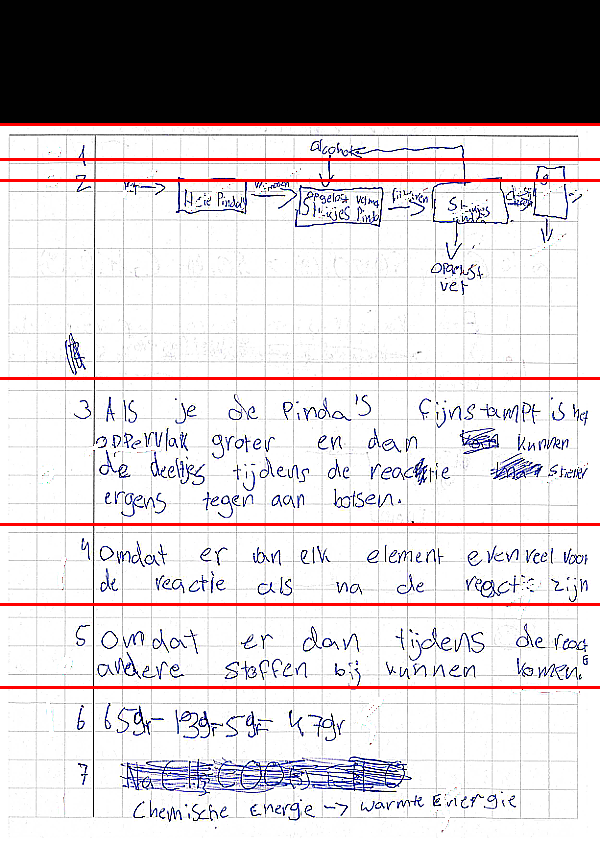 1
alcohol
2
Hele Pinda
Opgelost vet na
Stukjes Pinda
filtreren
Stukjes
pinda
opgelost
vet
3 Als je de Pinda's fijnstampt is het
oppervlak groter en dan kunnen
de deeltjes tijdens de reactie
ergens tegen aan botsen.
4 Omdat er van elk element evenveel voor
de reactie als na de reactie zijn
5 Omdat er dan tijdens de react
andere stoffen bij kunnen komen.
6 65gr- 13gr-5gr= 47gr
7
Chemische Energie -> warmte Energie